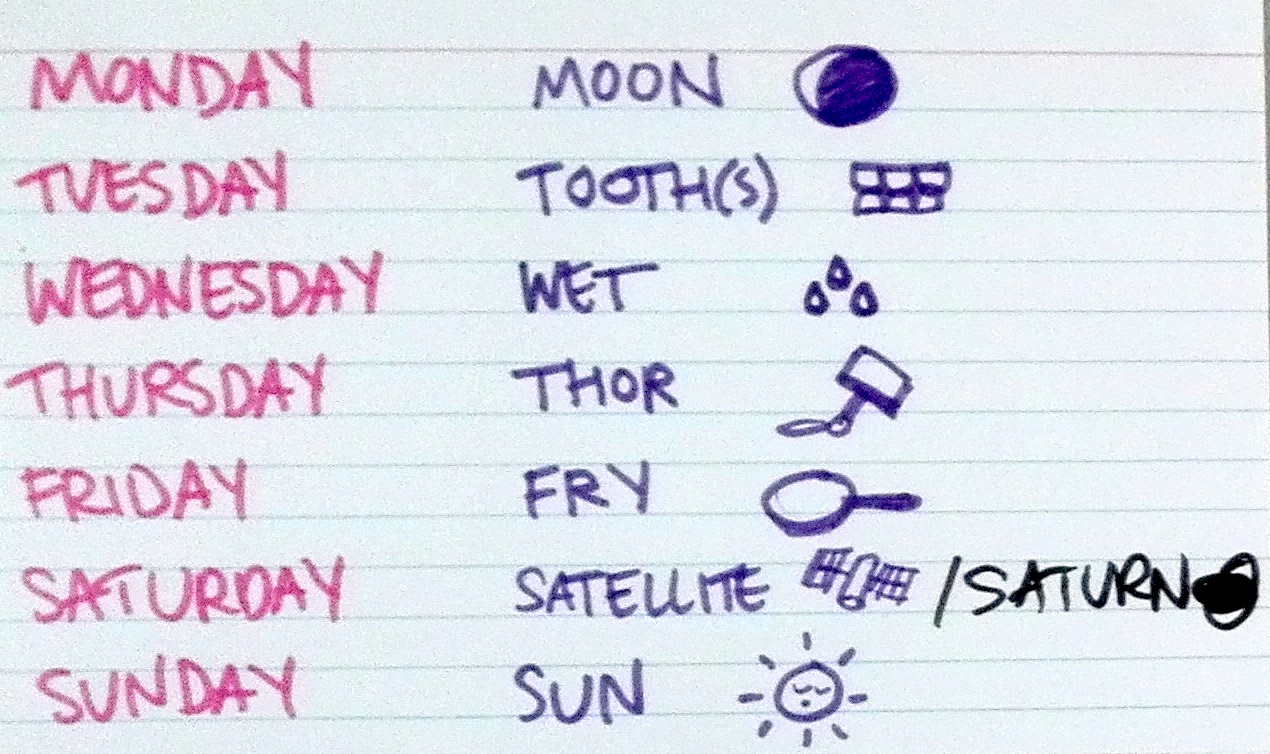 MONDAY MOON
TUESDAY TOOTH(S)
WEDNESDAY WET
THURSDAY THOR
FRIDAY FRY
SATURDAY SATELLITE /SATURN
SUNDAY SUN